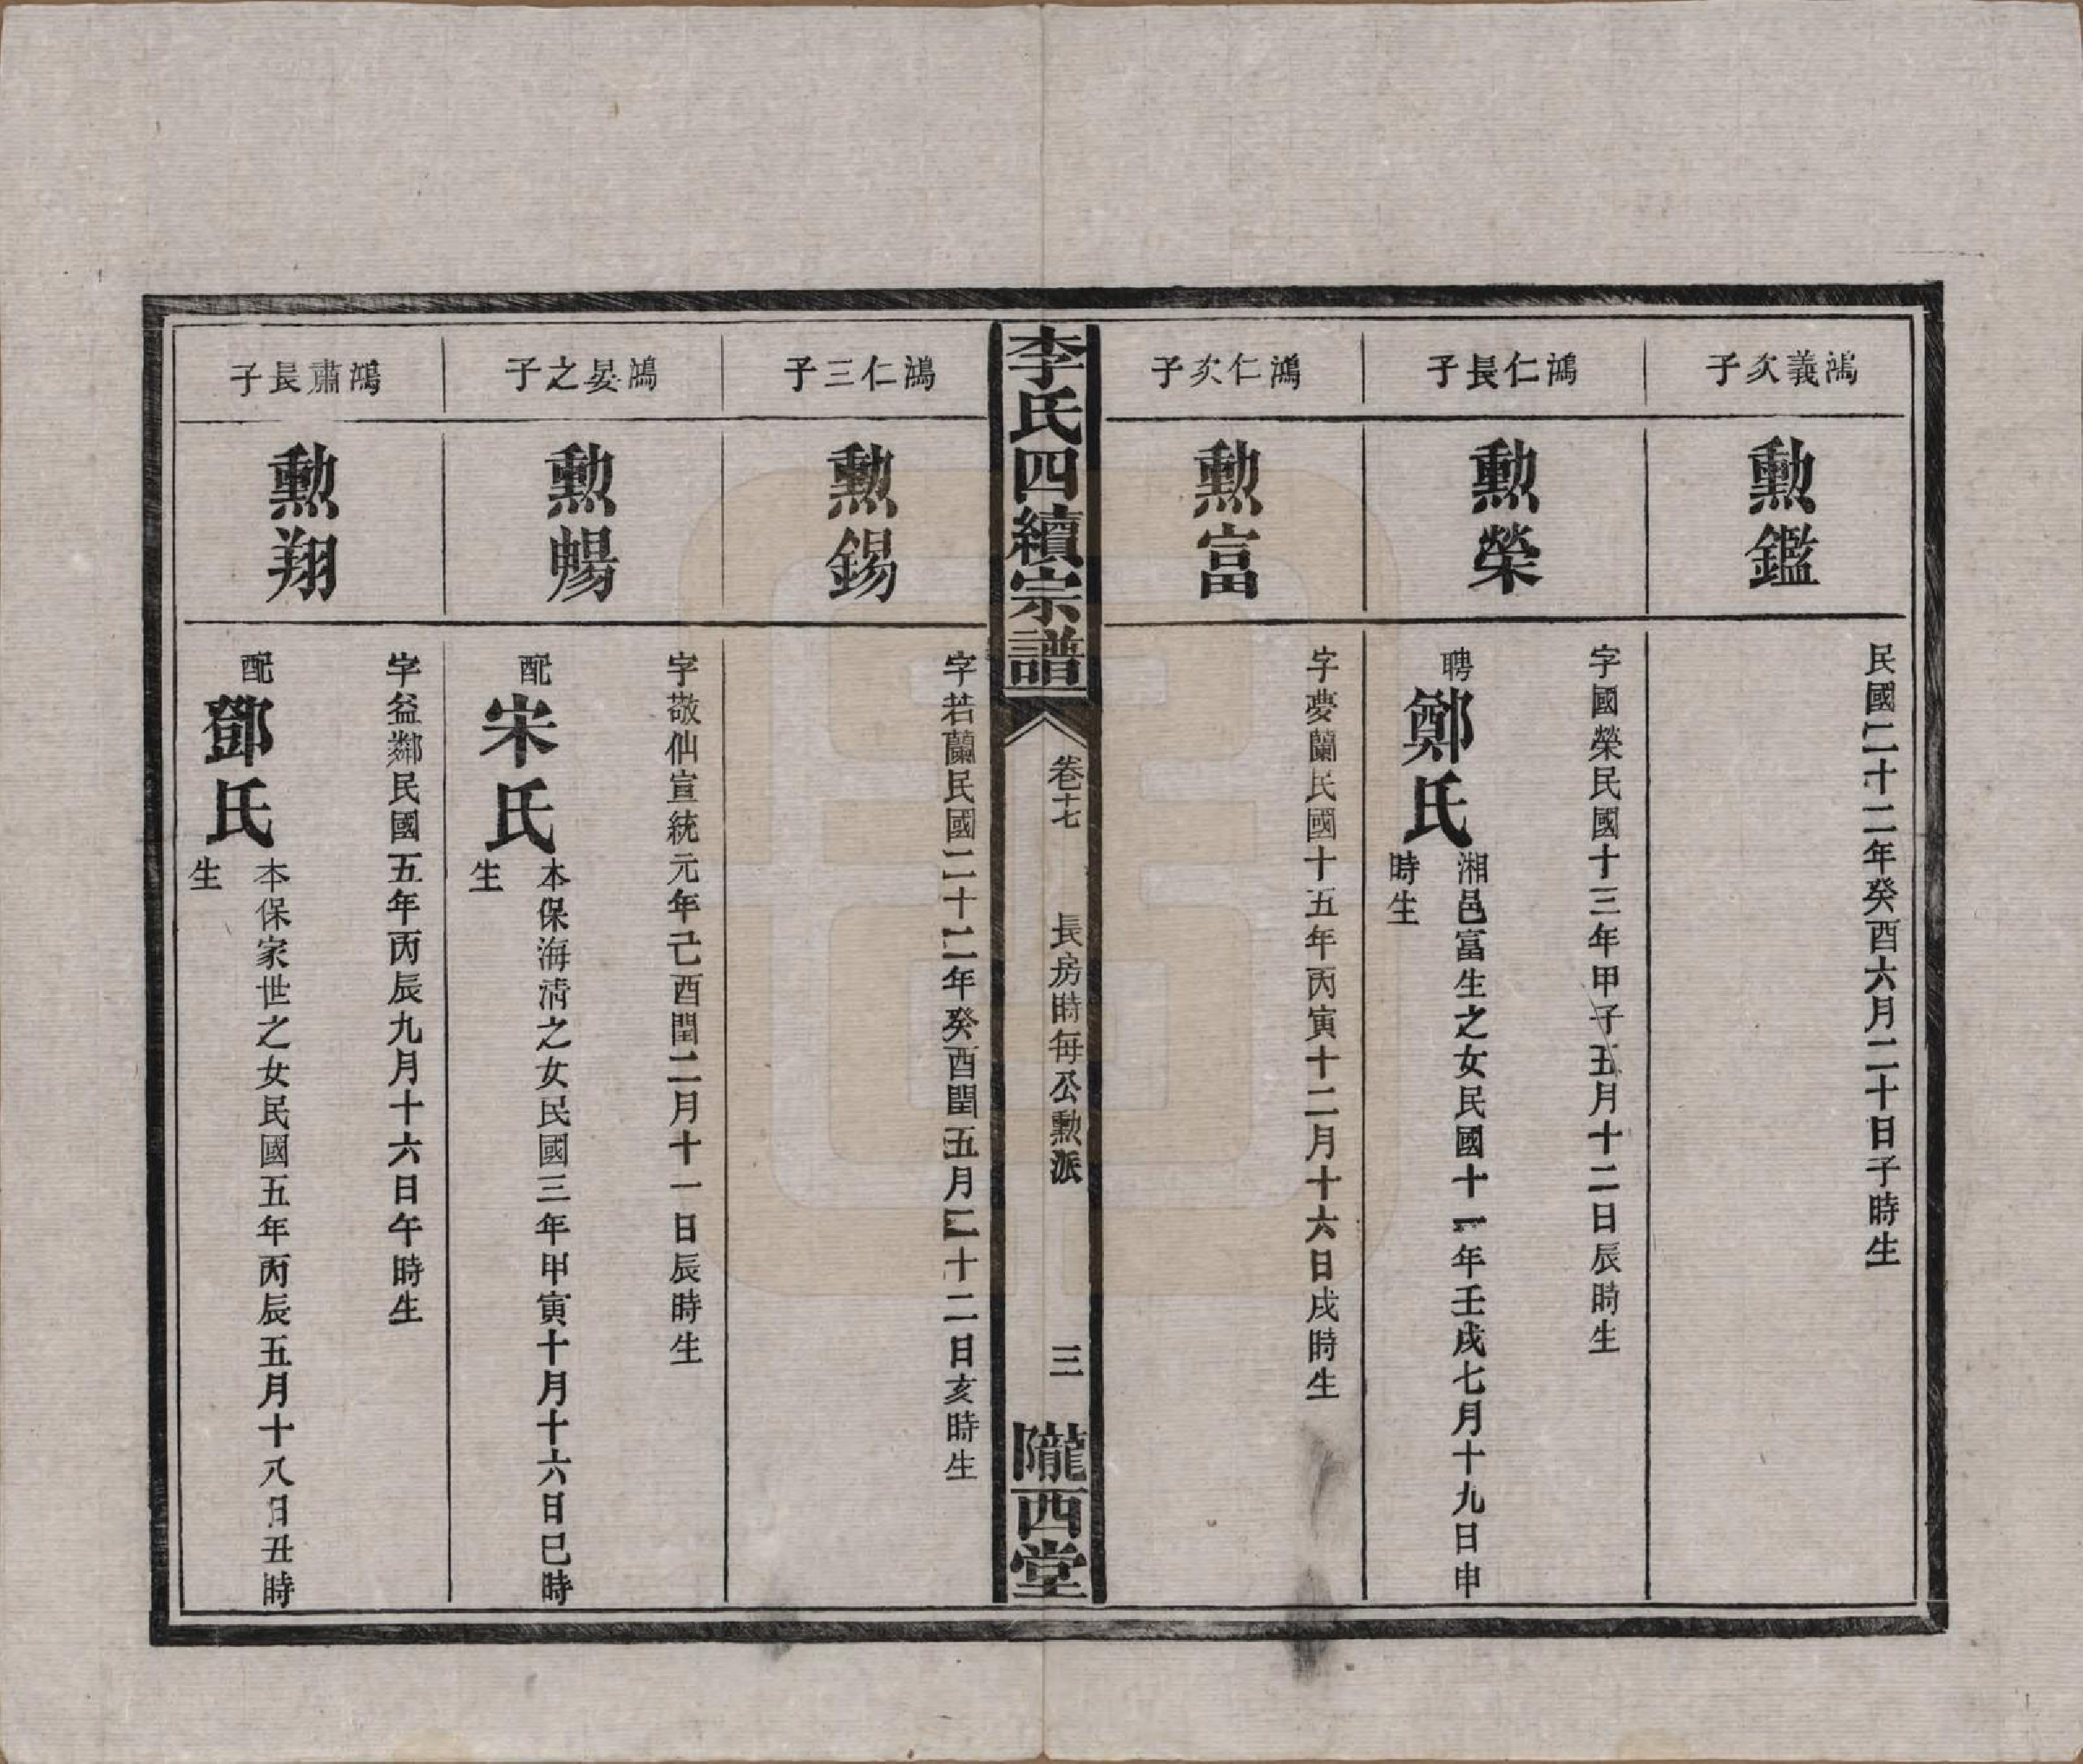 鴻義次子
勲鑑
民國二十二年癸酉六月二十日子時生
鴻仁長子
勲榮
字國榮民國十三年甲子五月十二日辰時生
聘鄭氏
湘邑富生之女民國十一年壬戌七月十九日申
時生
鴻仁次子
勲富
字夢蘭民國十五年丙寅十二月十六日戌時生
李氏四續宗譜
卷十七
長房時每公勲派
三
隴西堂
鴻仁三子
勲錫
字若蘭民國二十二年癸酉閏五月二十二日亥時生
鴻晏之子
勲暢
字敬仙宣統元年己酉閏二月十一日辰時生
配宋氏
本保海清之女民國三年甲寅十月十六日巳時
生
鴻肅長子
勲翔
字益鄰民國五年丙辰九月十六日午時生
配鄧氏
本保家世之女民國五年丙辰五月十八日丑時
生